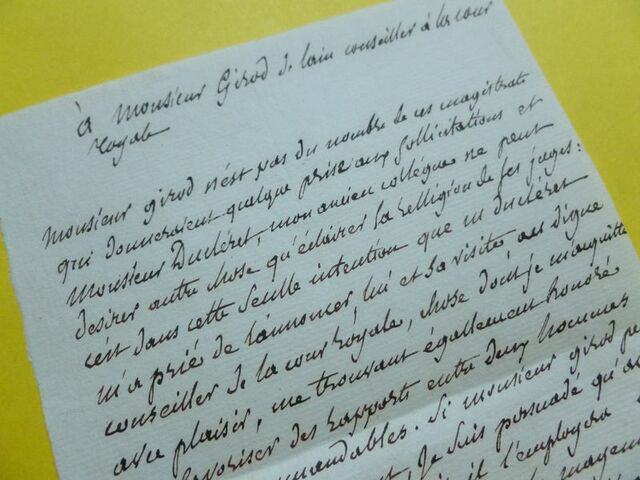 à Monsieur Girod de lain conseiller à la cour
royale
Monsieur girod n'est pas du nombre de ces magistrats
qui donneraient quelque prise aux sollicitations et
Monsieur Ducléret, mon ancien collégue ne peut
desirer autre chose qu'éclairer la relligion de ses juges:
c'est dans cette seule intention que m ducléret
m'a prié de l'annoncer, lui et sa visite au digne
conseiller de la cour royale, chose dont je m'acquitte
avec plaisir, me trouvant également honoré
favoriser des rapports entre deux hommes
mandables. Si monsieur girod
Je suis persuadé qu'a
il l'employera
moyen